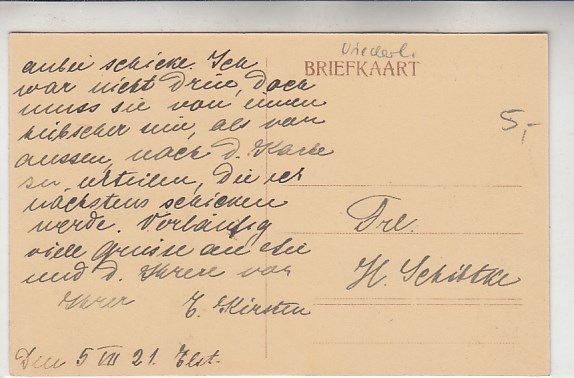 anbei schicke. Ich
war nicht drin, doch
muss sie von innen
hübscher sein, als von
aussen, nach d. Karte
zu urteilen, die ich
nächstens schicken
werde. Vorläufig
viele Grüsse an Sie
und d. Ihren von
Ihrer E. Kirsten
Den 5 VII 21. Elst.
Niederl.
BRIEFKAART
5,-
Frl.
H. Schibtke